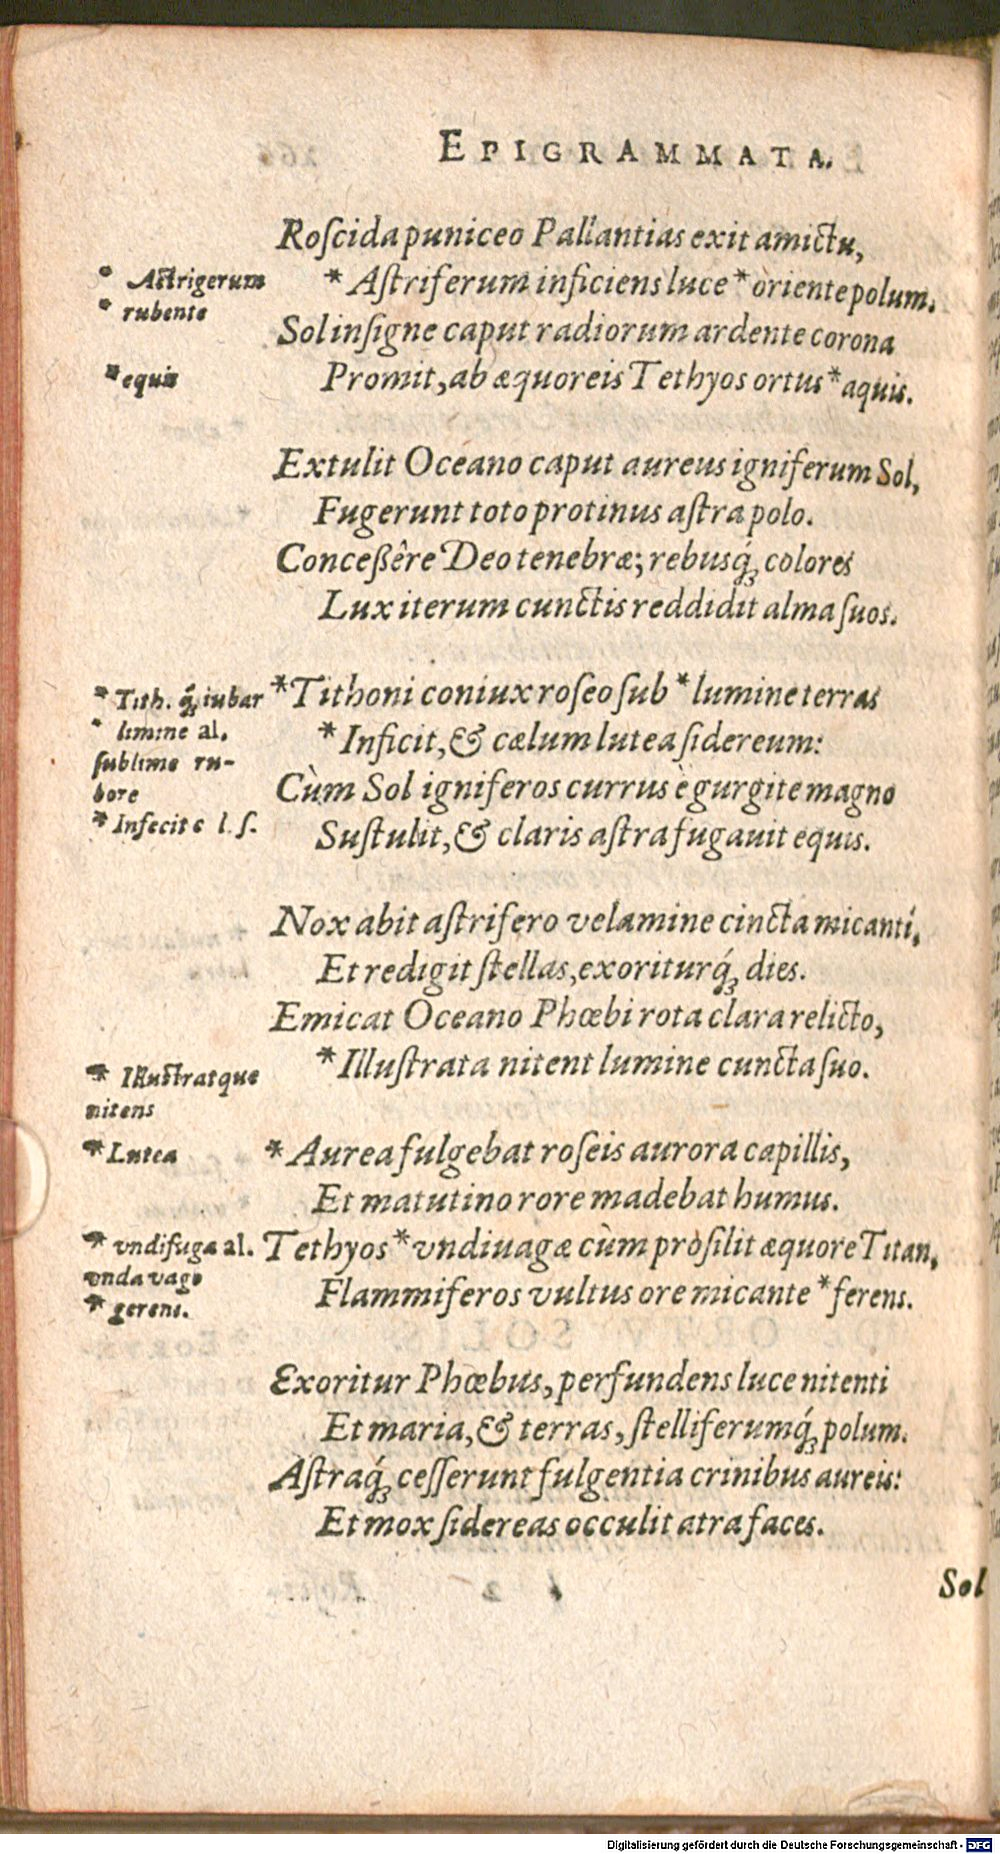 EPIGRAMMATA.
Roſcida puniceo Pallantias exit amictu,
* Aſtriferum inficiens luce * oriente polum.
Sol inſigne caput radiorum ardente corona
Promit, ab æquoreis Tethyos ortus * aquis.
* Actrigerum
* rubente
* equis
Extulit Oceano caput aureus igniferum Sol,
Fugerunt toto protinus aſtra polo.
Conceßêre Deo tenebræ; rebusq́ꝫ colores
Lux iterum cunctis reddidit alma ſuos.
* Tithoni coniux roſeo ſub * lumine terras
* Inficit, & cælum lutea ſidereum:
Cùm Sol igniferos currus è gurgite magno
Suſtulit, & claris aſtra fugauit equis.
* Tith. q́ꝫ iubar
* limine al.
ſublime ru-
bore
* Infecit e l. ſ.
Nox abit aſtrifero velamine cincta micanti,
Et redigit ſtellas, exoriturq́ꝫ dies.
Emicat Oceano Phœbi rota clara relicto,
* Illuſtrata nitent lumine cuncta ſuo.
* Illuſtratque
nitens
* Aurea fulgebat roſeis aurora capillis,
Et matutino rore madebat humus.
Tethyos * vndiuagæ cùm proſilit æquore Titan,
Flammiferos vultus ore micante * ferens.
* Lutea
* vndifuga al.
vnda vago
* gerens.
Exoritur Phœbus, perfundens luce nitenti
Et maria, & terras, ſtelliferumq́ꝫ polum.
Aſtraq́ꝫ ceſſerunt fulgentia crinibus aureis:
Et mox ſidereas occulit atra faces.
Sol
Digitalisierung gefördert durch die Deutsche Forschungsgemeinschaft - DFG